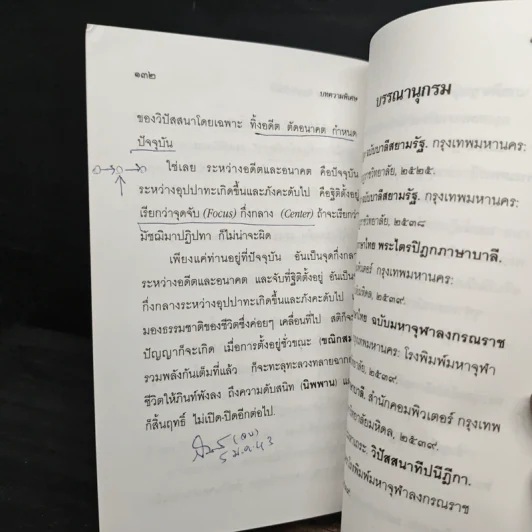 ๑๓๒
บทความพิเศษ
ของวิปัสสนาโดยเฉพาะ ทิ้งอดีต ตัดอนาคต กำหนด
ปัจจุบัน
ใช่เลย ระหว่างอดีตและอนาคต คือปัจจุบัน
ระหว่างอุปปาทะเกิดขึ้นและภังคะดับไป คือฐิติตั้งอยู่
เรียกว่าจุดจับ (Focus) กึ่งกลาง (Center) ถ้าจะเรียกว่า
มัชฌิมาปฏิปทา ก็ไม่น่าจะผิด
เพียงแค่ท่านอยู่ที่ปัจจุบัน อันเป็นจุดกึ่งกลาง
ระหว่างอดีตและอนาคต และจับที่ฐิติตั้งอยู่ อันเป็น
กึ่งกลางระหว่างอุปปาทะเกิดขึ้นและภังคะดับไป
มองธรรมชาติของชีวิตซึ่งค่อยๆ เคลื่อนที่ไป สติก็จะ
ปัญญาก็จะเกิด เมื่อการตั้งอยู่ชั่วขณะ (ขณิกส
รวมพลังกันเต็มที่แล้ว ก็จะทะลุทะลวงทลายฉาก
ชีวิตให้ภินท์พังลง ถึงความดับสนิท (นิพพาน)
ก็สิ้นฤทธิ์ ไม่เปิด-ปิดอีกต่อไป.
(จบ)
๕ ม.ค. ๔๓
บรรณานุกรม
ฉบับบาลีสยามรัฐ. กรุงเทพมหานคร:
วิทยาลัย, ๒๕๒๕.
ฉบับบาลีสยามรัฐ. กรุงเทพมหานคร:
วิทยาลัย, ๒๕๓๘
ภาษาไทย พระไตรปิฎกภาษาบาลี.
กรุงเทพมหานคร:
มหิดล, ๒๕๓๙.
ไทย ฉบับมหาจุฬาลงกรณราช
กรุงเทพมหานคร: โรงพิมพ์มหาจุฬา
๒๕๓๙.
บาลี. สำนักคอมพิวเตอร์ กรุงเทพ
วิทยาลัยมหิดล, ๒๕๓๙.
เถระ: วิปัสสนาทีปนีฎีกา.
โรงพิมพ์มหาจุฬาลงกรณราช